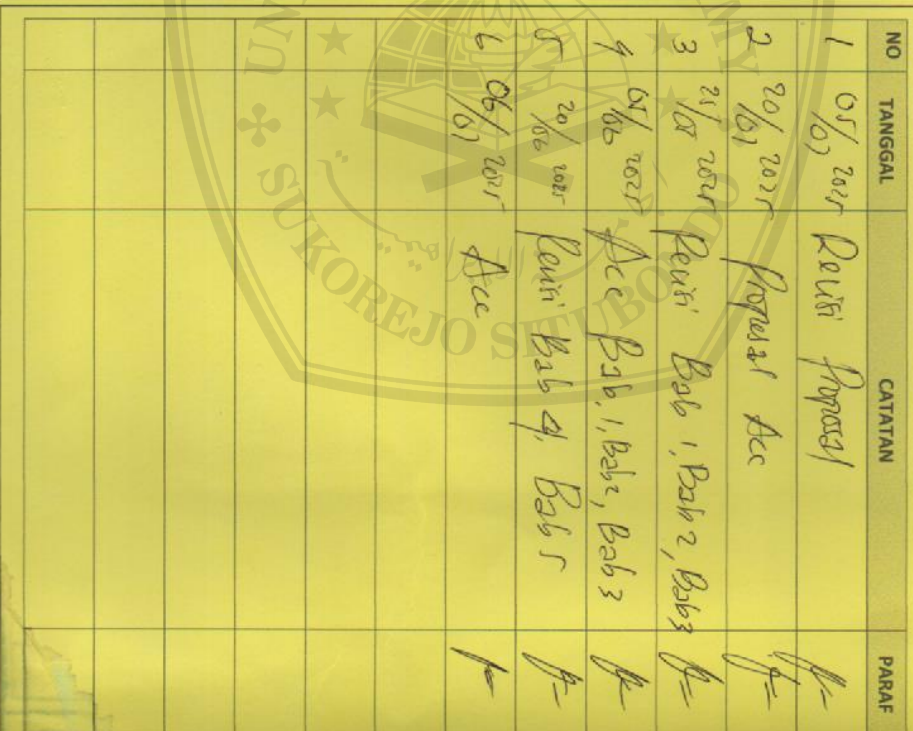 NO TANGGAL CATATAN PARAF
1 05/07 2025 Revisi Proposal
2 20/07 2025 Proposal Acc
3 25/05 2025 Revisi Bab 1, Bab 2, Bab 3
4 05/06 2025 Acc Bab, 1, Bab 2, Bab 3
5 20/06 2025 Revisi Bab 4, Bab 5
6 06/07 2025 Acc
SUKOREJO SITUBONDO